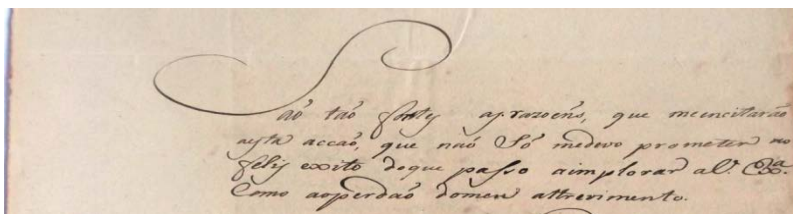 Saõ taõ fortes as razoens, que meencitaraõ
aesta accaõ, que naõ Só medevo prometer no
feliz exito doque passo aimplorar aV. Exa.
Como aoperdaõ domeu attrevimento.